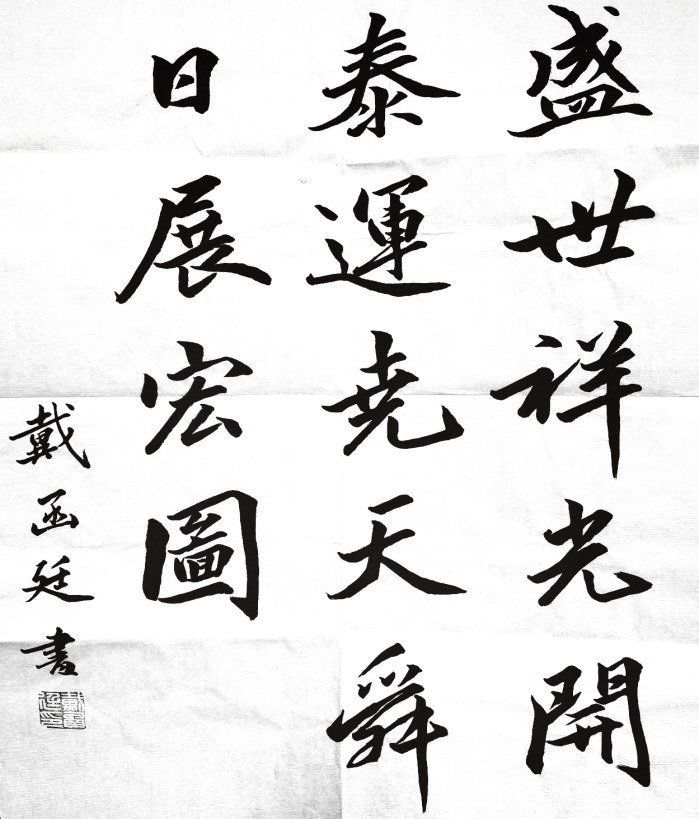 盛世祥光開
泰運尧天舜
日展宏圖
戴函廷書